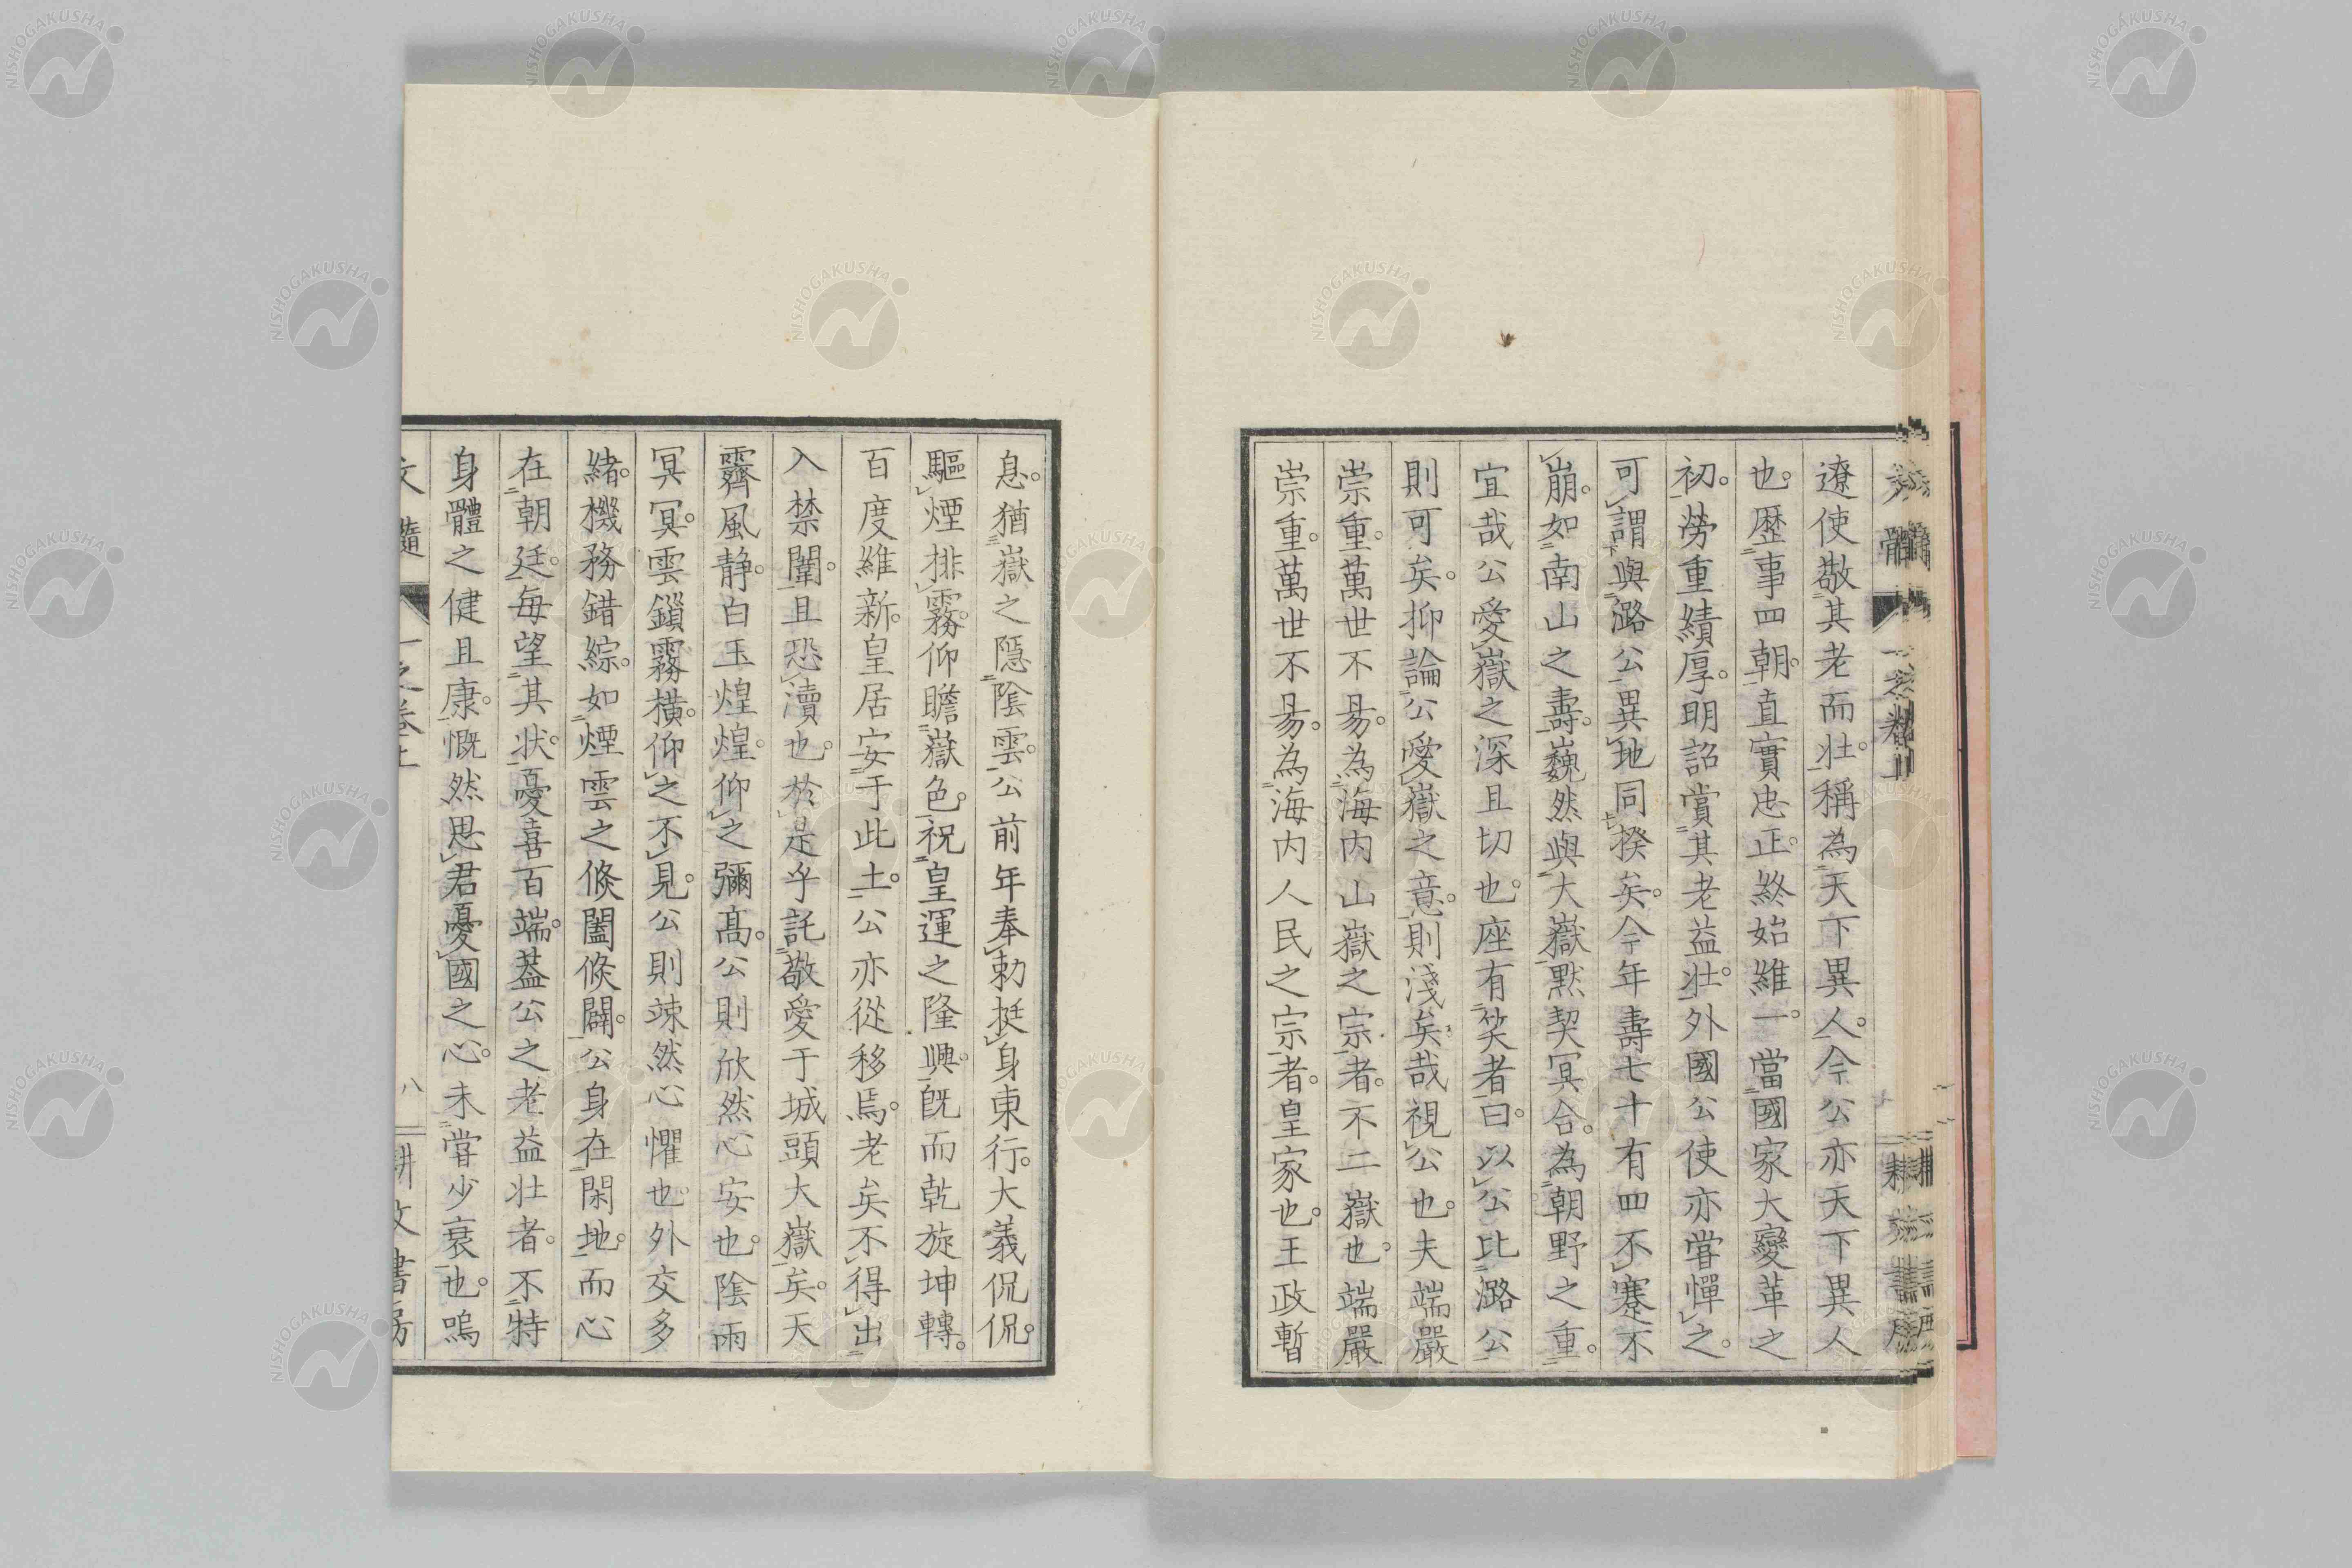 遼使敬其老而壯。稱為天下異人。今公亦天下異人
也。歴事四朝。直實忠正。終始維一。當國家大變革之
初。勞重績厚。明詔賞其老益壯。外國公使亦嘗憚之。
可謂與潞公異地同揆矣。今年壽七十有四不騫不
崩。如南山之壽。巍然與大嶽默契冥合。為朝野之重。
宜哉公愛嶽之深且切也。座有笑者曰。以公比潞公
則可矣。抑論公愛嶽之意。則淺矣哉視公也。夫端嚴
崇重。萬世不易。為海内山嶽之宗者。不二嶽也。端嚴
崇重。萬世不易。為海内人民之宗者。皇家也。王政暫
息。猶嶽之隱陰雲。公前年奉勅挺身東行。大義侃侃。
驅煙排霧。仰瞻嶽色。祝皇運之隆興。旣而乾旋坤轉。
百度維新。皇居安于此土。公亦從移焉。老矣不得出
入禁闈。且恐瀆也。於是乎託敬愛于城頭大嶽矣。天
霽風静。白玉煌煌。仰之彌髙。公則欣然心安也。陰雨
冥冥。雲鎖霧橫。仰之不見。公則竦然心懼也。外交多
緒。機務錯綜。如煙雲之倏闔倏闢。公身在閑地。而心
在朝廷。每望其状。憂喜百端。葢公之老益壮者。不特
身體之健且康。慨然思君憂國之心。未嘗少衰也。嗚
文髓 一之卷上 八 耕文書房